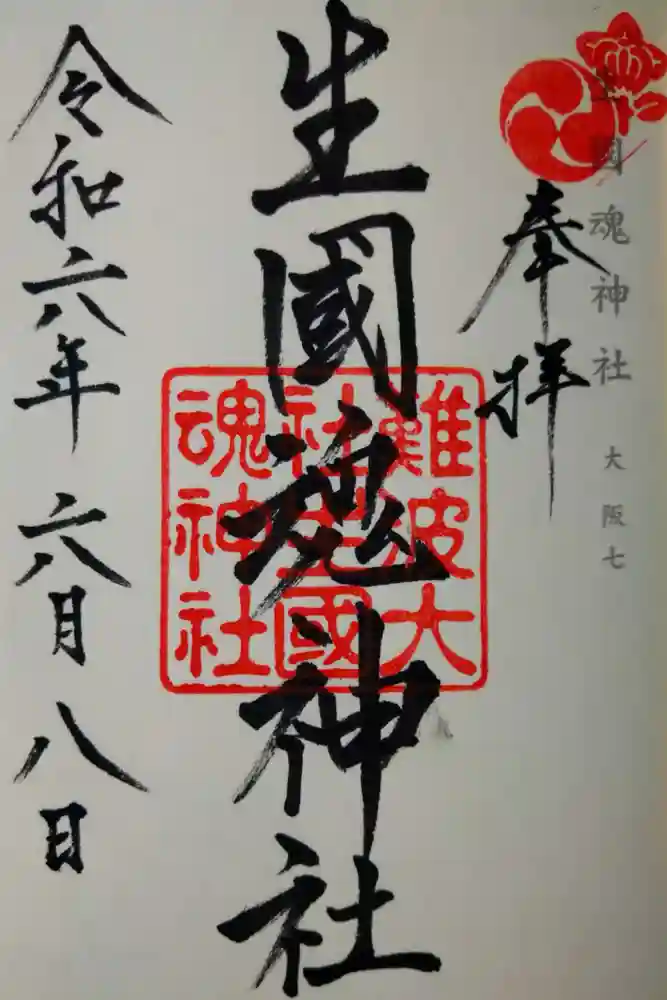 生国魂神社 大阪七
奉拝
生國魂神社
難波大
社生國
魂神社
令和六年 六月 八日